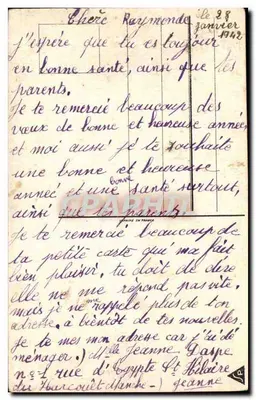 le 28
janvier
1942
Chère Raymonde
j'espère que tu es toujour
en bonne santé, ainsi que tes
parents.
Je te remercié beaucoup des
vœux de bonne et heureuse année
et moi aussi je te souhaite
une bonne et heureuse
anneé et une bonne santé surtout,
ainsi que tes parents.
Je te remercié beaucoup de
ta petite carte qui ma fait
bien plaisir, tu doit de dire
elle ne me répond pas vite,
mais je ne rappelé plus de ton
adresse, à bientôt de tes nouvelles.
Je te mes mon adresse car j'ai dé
ménager.) Mlle Jeanne Daspe
n=1 rue d'Egypte St Hilaire
du Harcouët Manche-) Jeanne